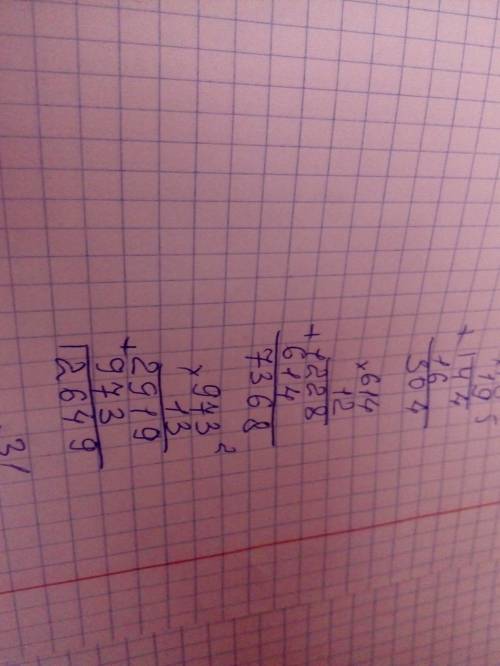 19
+ 144
16
304
× 614
12
+ 1228
614
7368
× 973
13
+ 2919
973
12649